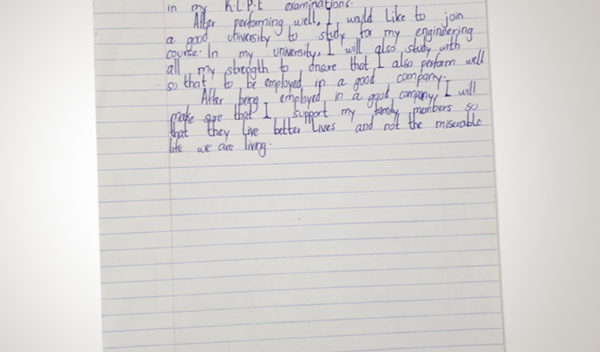 in my K.L.P.E examinations.
After performing well, I would like to join
a good university to study for my engineering
course. In my university, I will also study with
all my strength to ensure that I also perform well
so that to be employed in a good company.
After being employed in a good company, I will
make sure that I support my family members so
that they live better lives and not the miserable
life we are living.